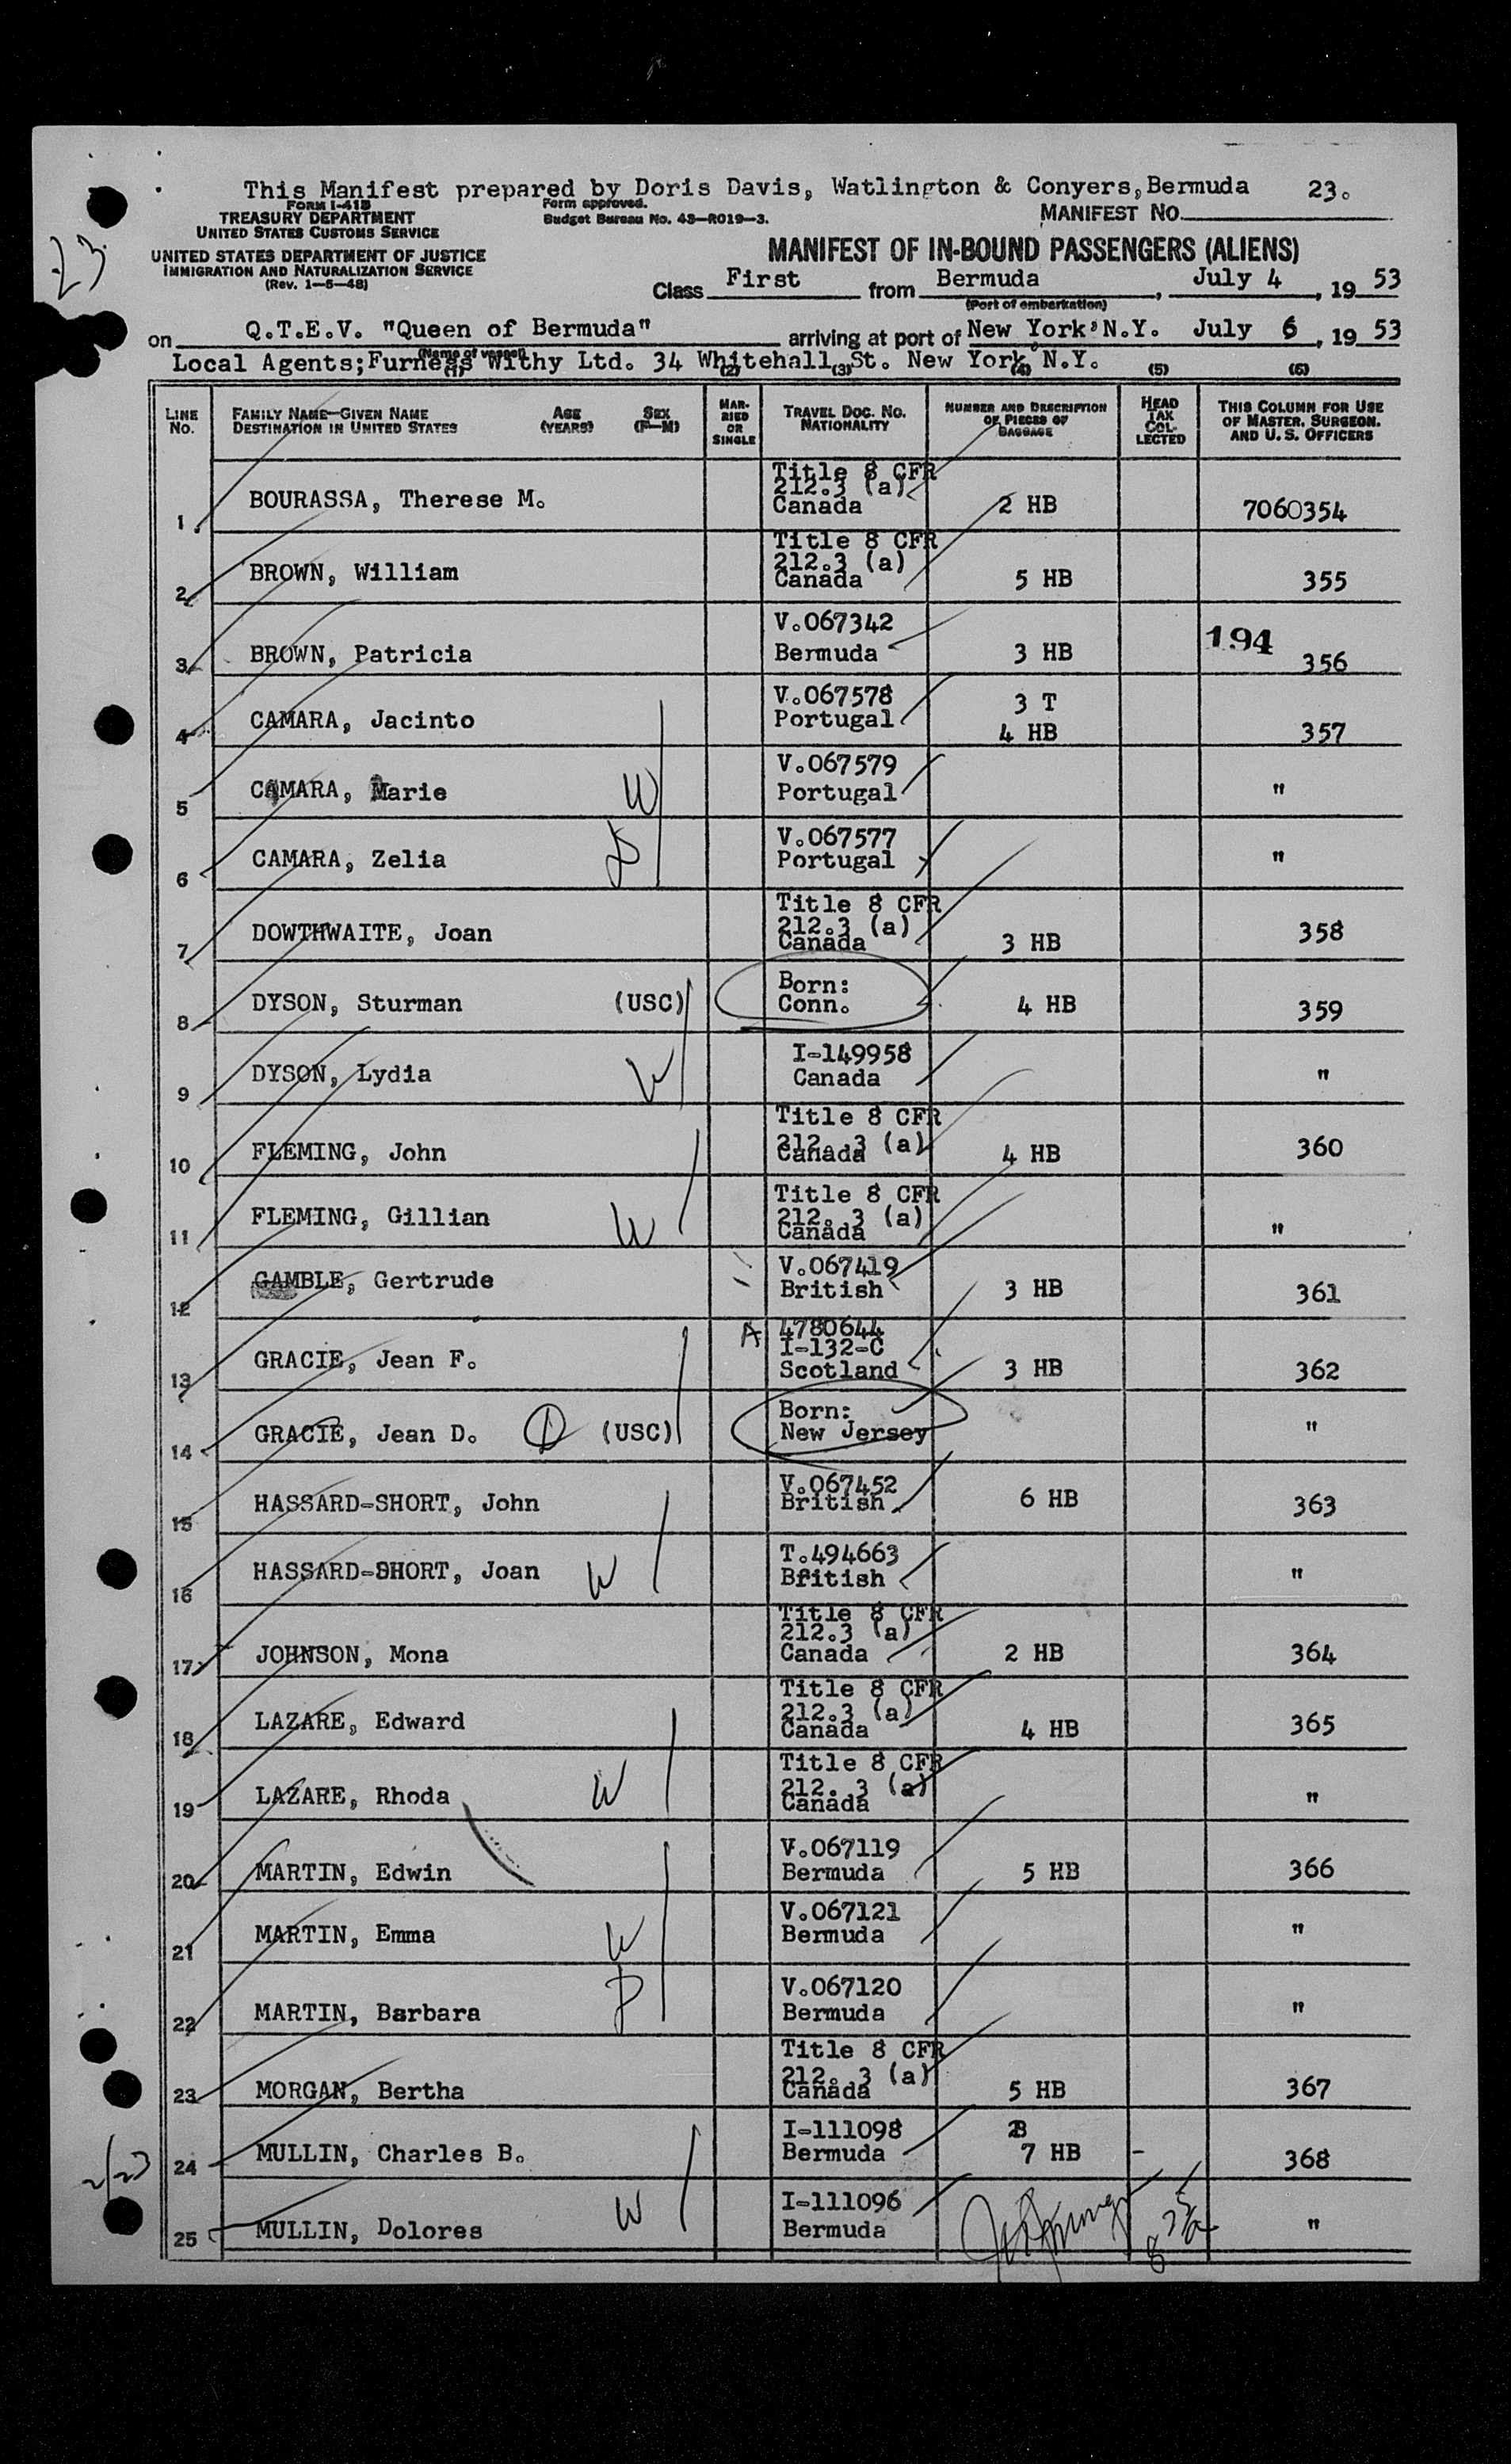 This Manifest prepared by Doris Davis, Watlington & Conyers, Bermuda 23.
FORM I-418 Form approved. MANIFEST NO.
TREASURY DEPARTMENT Budget Bureau No. 43-R019-3.
UNITED STATES CUSTOMS SERVICE
23
UNITED STATES DEPARTMENT OF JUSTICE MANIFEST OF IN-BOUND PASSENGERS (ALIENS)
IMMIGRATION AND NATURALIZATION SERVICE
(Rev. 1-5-48)
Class First from Bermuda, July 4, 1953
(Port of embarkation)
on Q.T.E.V. "Queen of Bermuda" arriving at port of New York, N.Y. July 6, 1953
(Name of vessel)
Local Agents; Furness Withy Ltd. 34 Whitehall St. New York, N.Y.
(1) (2) (3) (4) (5) (6)
LINE No. FAMILY NAME-GIVEN NAME DESTINATION IN UNITED STATES AGE (YEARS) SEX (F-M) MARRIED OR SINGLE TRAVEL DOC. NO. NATIONALITY NUMBER AND DESCRIPTION OF PIECES OF BAGGAGE HEAD TAX COLLECTED THIS COLUMN FOR USE OF MASTER, SURGEON, AND U. S. OFFICERS
1 BOURASSA, Therese M. Title 8 CFR 212.3 (a) Canada 2 HB 7060354
2 BROWN, William Title 8 CFR 212.3 (a) Canada 5 HB 355
3 BROWN, Patricia V.067342 Bermuda 3 HB 194 356
4 CAMARA, Jacinto V.067578 Portugal 3 T 4 HB 357
5 CAMARA, Marie W V.067579 Portugal "
6 CAMARA, Zelia D V.067577 Portugal "
7 DOWTHWAITE, Joan Title 8 CFR 212.3 (a) Canada 3 HB 358
8 DYSON, Sturman (USC) Born: Conn. 4 HB 359
9 DYSON, Lydia W I-149958 Canada "
10 FLEMING, John Title 8 CFR 212. 3 (a) Canada 4 HB 360
11 FLEMING, Gillian W Title 8 CFR 212. 3 (a) Canada "
12 GAMBLE, Gertrude V.067419 British 3 HB 361
13 GRACIE, Jean F. A 4780644 I-132-C Scotland 3 HB 362
14 GRACIE, Jean D. D (USC) Born: New Jersey "
15 HASSARD-SHORT, John V.067452 British 6 HB 363
16 HASSARD-SHORT, Joan W T.494663 British "
17 JOHNSON, Mona Title 8 CFR 212.3 (a) Canada 2 HB 364
18 LAZARE, Edward Title 8 CFR 212.3 (a) Canada 4 HB 365
19 LAZARE, Rhoda W Title 8 CFR 212. 3 (a) Canada "
20 MARTIN, Edwin V.067119 Bermuda 5 HB 366
21 MARTIN, Emma W V.067121 Bermuda "
22 MARTIN, Barbara D V.067120 Bermuda "
23 MORGAN, Bertha Title 8 CFR 212. 3 (a) Canada 5 HB 367
24 MULLIN, Charles B. I-111098 Bermuda 7 HB - 368
25 MULLIN, Dolores W I-111096 Bermuda "
2/23